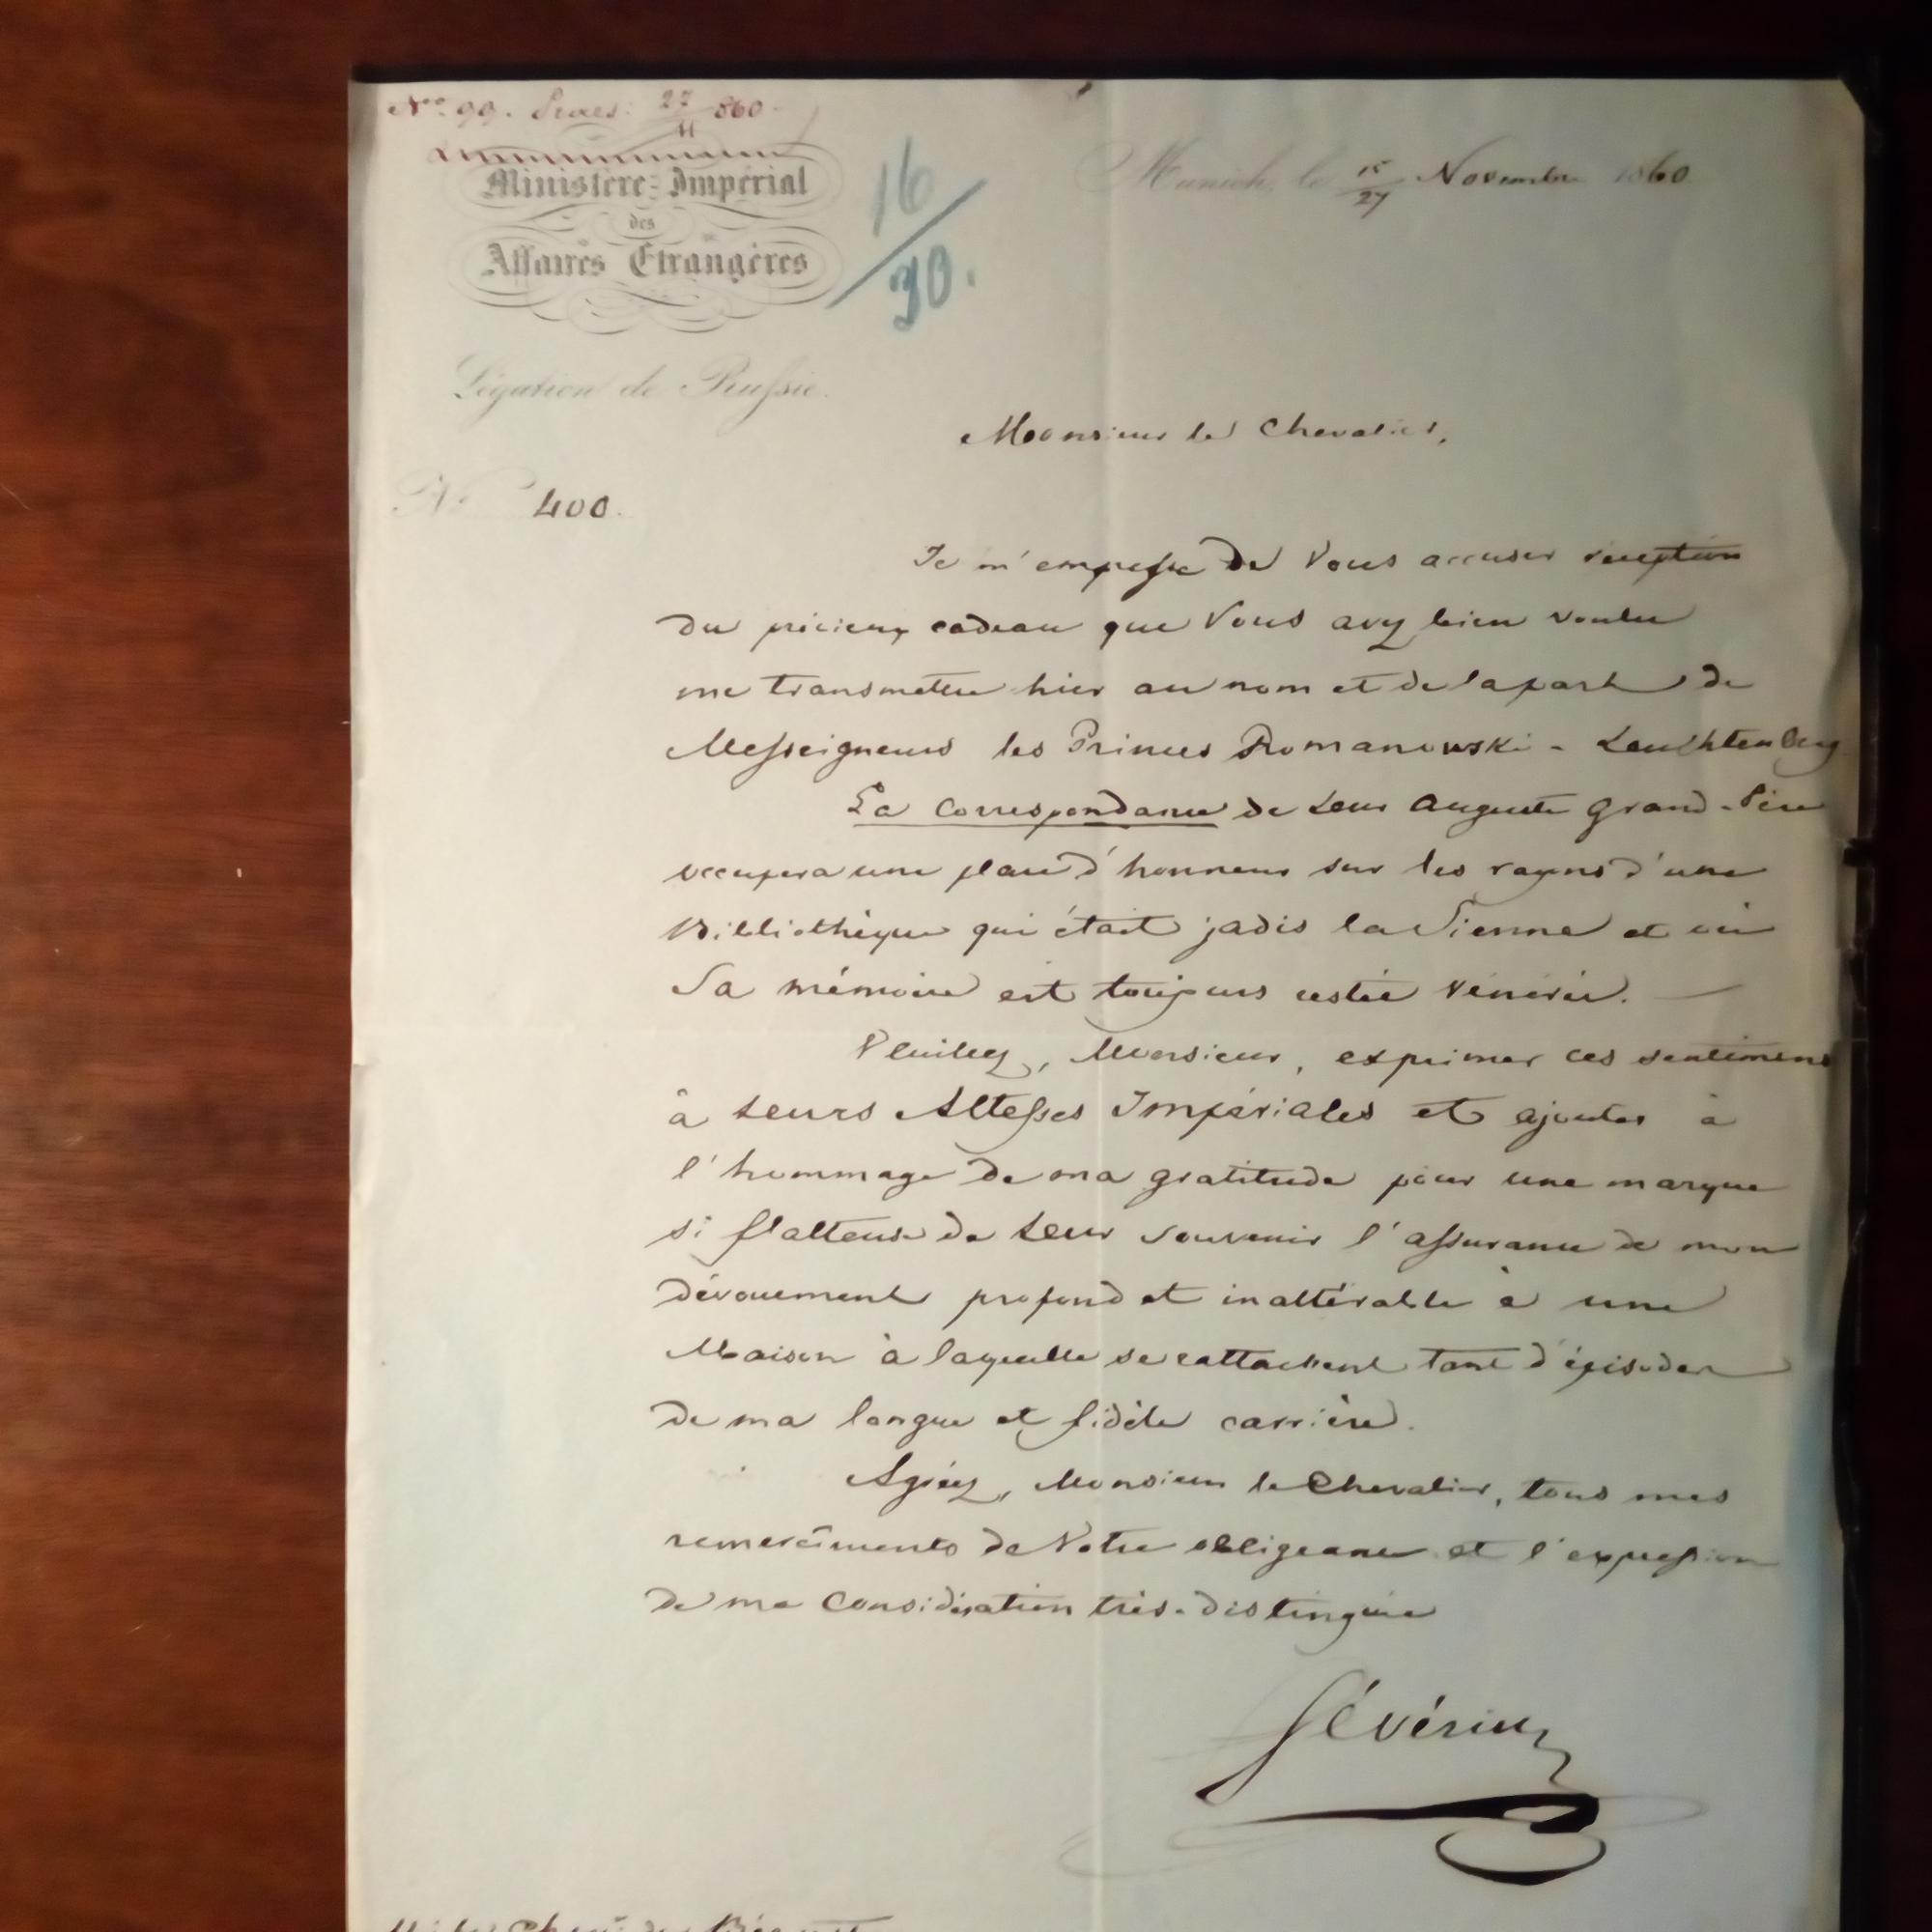 No. 99. Praes: 27/11 860.
Ministère Impérial
des
Affaires Etrangères
16/30.
Munich, le 15/27 Novembre 1860
Légation de Russie.
Monsieur le Chevalier,
No 400.
Je m'empresse de Vous accuser réception
du précieux cadeau que Vous avez bien voulu
me transmettre hier au nom et de la part de
Messeigneurs les Princes Romanowski - Leuchtenberg
La Correspondance de Leur Auguste Grand-Père
occupera une place d'honneur sur les rayons d'une
Bibliothèque qui était jadis la Sienne et où
Sa mémoire est toujours restée vénérée.
Veuillez, Monsieur, exprimer ces sentimens
à Leurs Altesses Impériales et ajouter à
l'hommage de ma gratitude pour une marque
si flatteuse de Leur souvenir l'assurance de mon
dévouement profond et inaltérable à une
Maison à laquelle se rattachent tant d'épisodes
de ma longue et fidèle carrière.
Agréez, Monsieur le Chevalier, tous mes
remercîments de Votre obligeance et l'expression
de ma considération très-distinguée
Sévérine